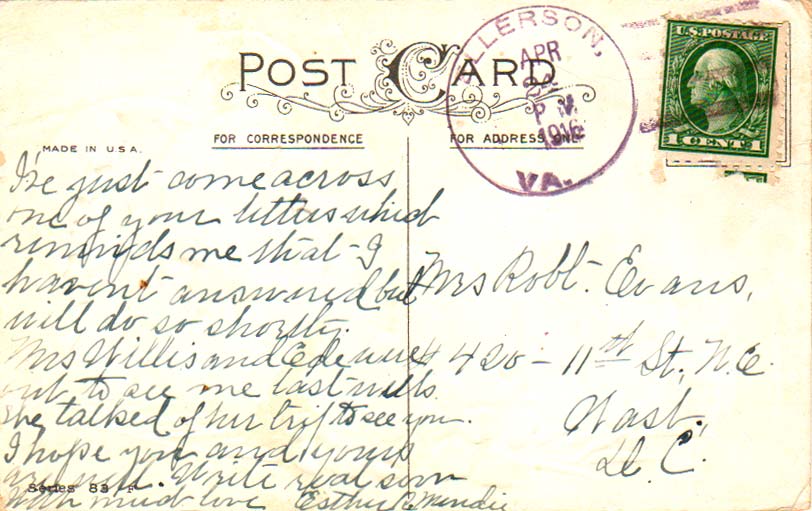 POST CARD
FOR CORRESPONDENCE
FOR ADDRESS ONLY
MADE IN U.S.A.
ELLERSON,
APR
P M
1916
VA.
U.S. POSTAGE
1 CENT 1
I've just come across
one of your letters which
reminds me that I
havent answered but
will do so shortly.
Mrs Willis and were
out to see me last
She talked of her trip to see you.
I hope you and yours
are well. Write real soon
With much love Esther
Series 83 F
Mrs Robt. Evans,
420 - 11th St, N.E.
Wash.,
D. C.